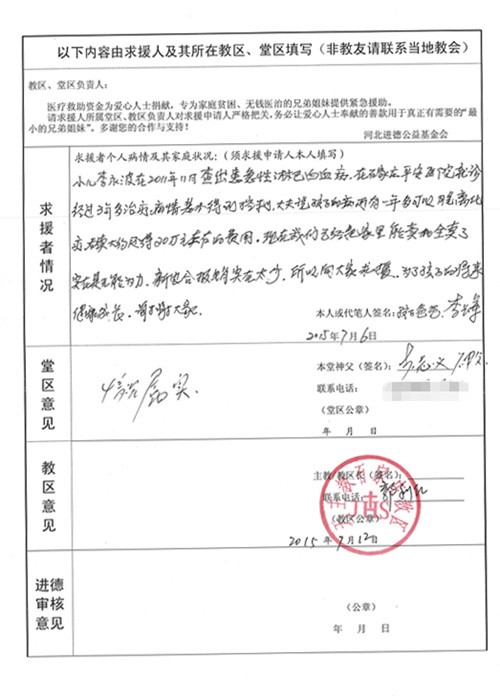 以下内容由求援人及其所在教区、堂区填写（非教友请联系当地教会）
教区、堂区负责人：
医疗救助资金为爱心人士捐献，专为家庭贫困、无钱医治的兄弟姐妹提供紧急援助。
请求援人所属堂区、教区负责人对求援申请人严格把关，务必让爱心人士奉献的善款用于真正有需要的“最
小的兄弟姊妹”。多谢您的合作与支持！
河北进德公益基金会
求援者情况
求援者个人病情及其家庭状况：（须求援申请人本人填写）
小儿李永波在2011年11月查出患急性淋巴白血病，在石家庄平安医院就诊
经过3年多治疗，病情基本得到控制，大夫说孩子的病再有一年多可以脱离化
疗，大约还得20万左右的费用，现在我们已经把家里能卖的全卖了
实在是无能为力，新农合报销实在太少，所以向大家求援，为了孩子的将来
健康成长，谢谢大家
本人或代笔人签名：
2015年7月6日
堂区意见
情况属实．
本堂神父（签名）：
联系电话：
（堂区公章）
年 月 日
教区意见
主教/教区长（签名）：
联系电话：
（教区公章）
2015年7月12日
进德审核意见
（公章）
年 月 日